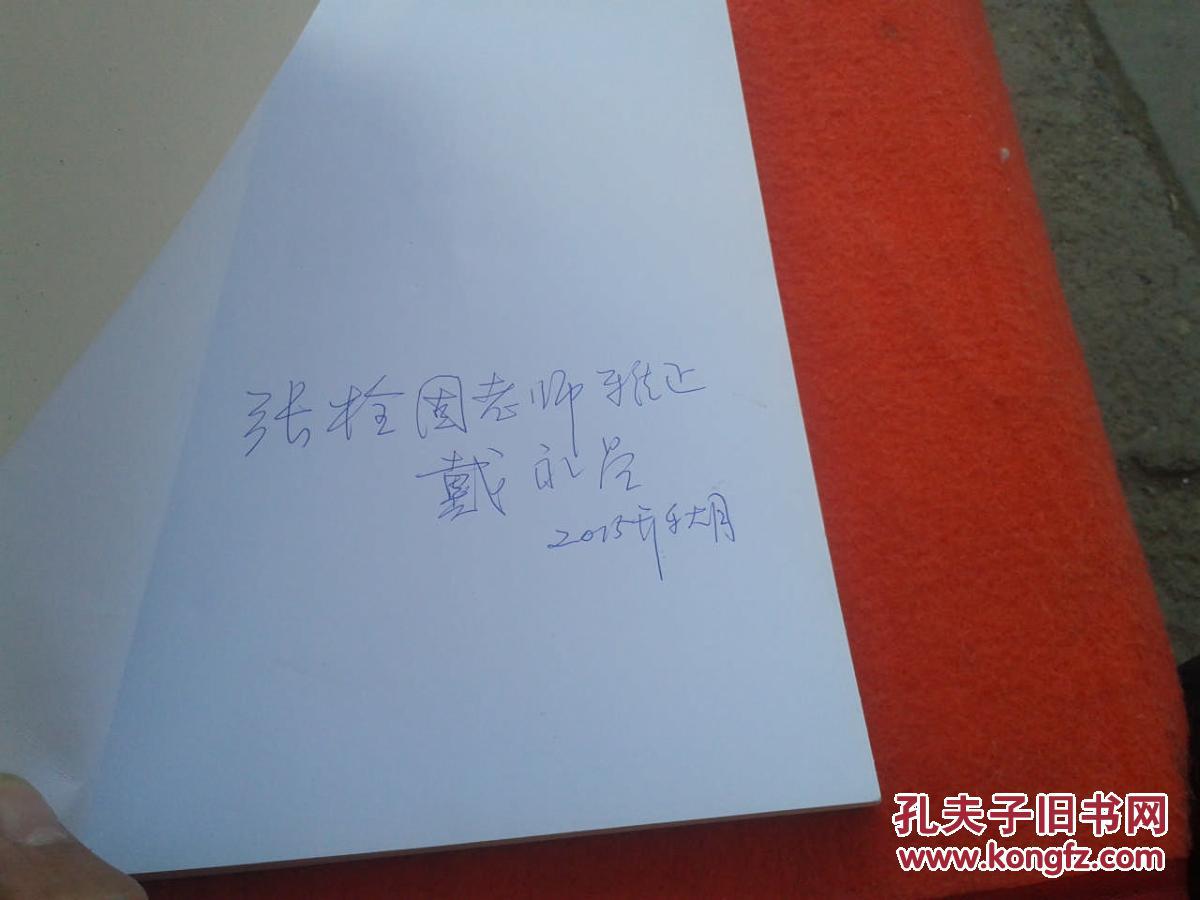 张栓固老师雅正
戴
2015年
孔夫子旧书网
www.kongfz.com